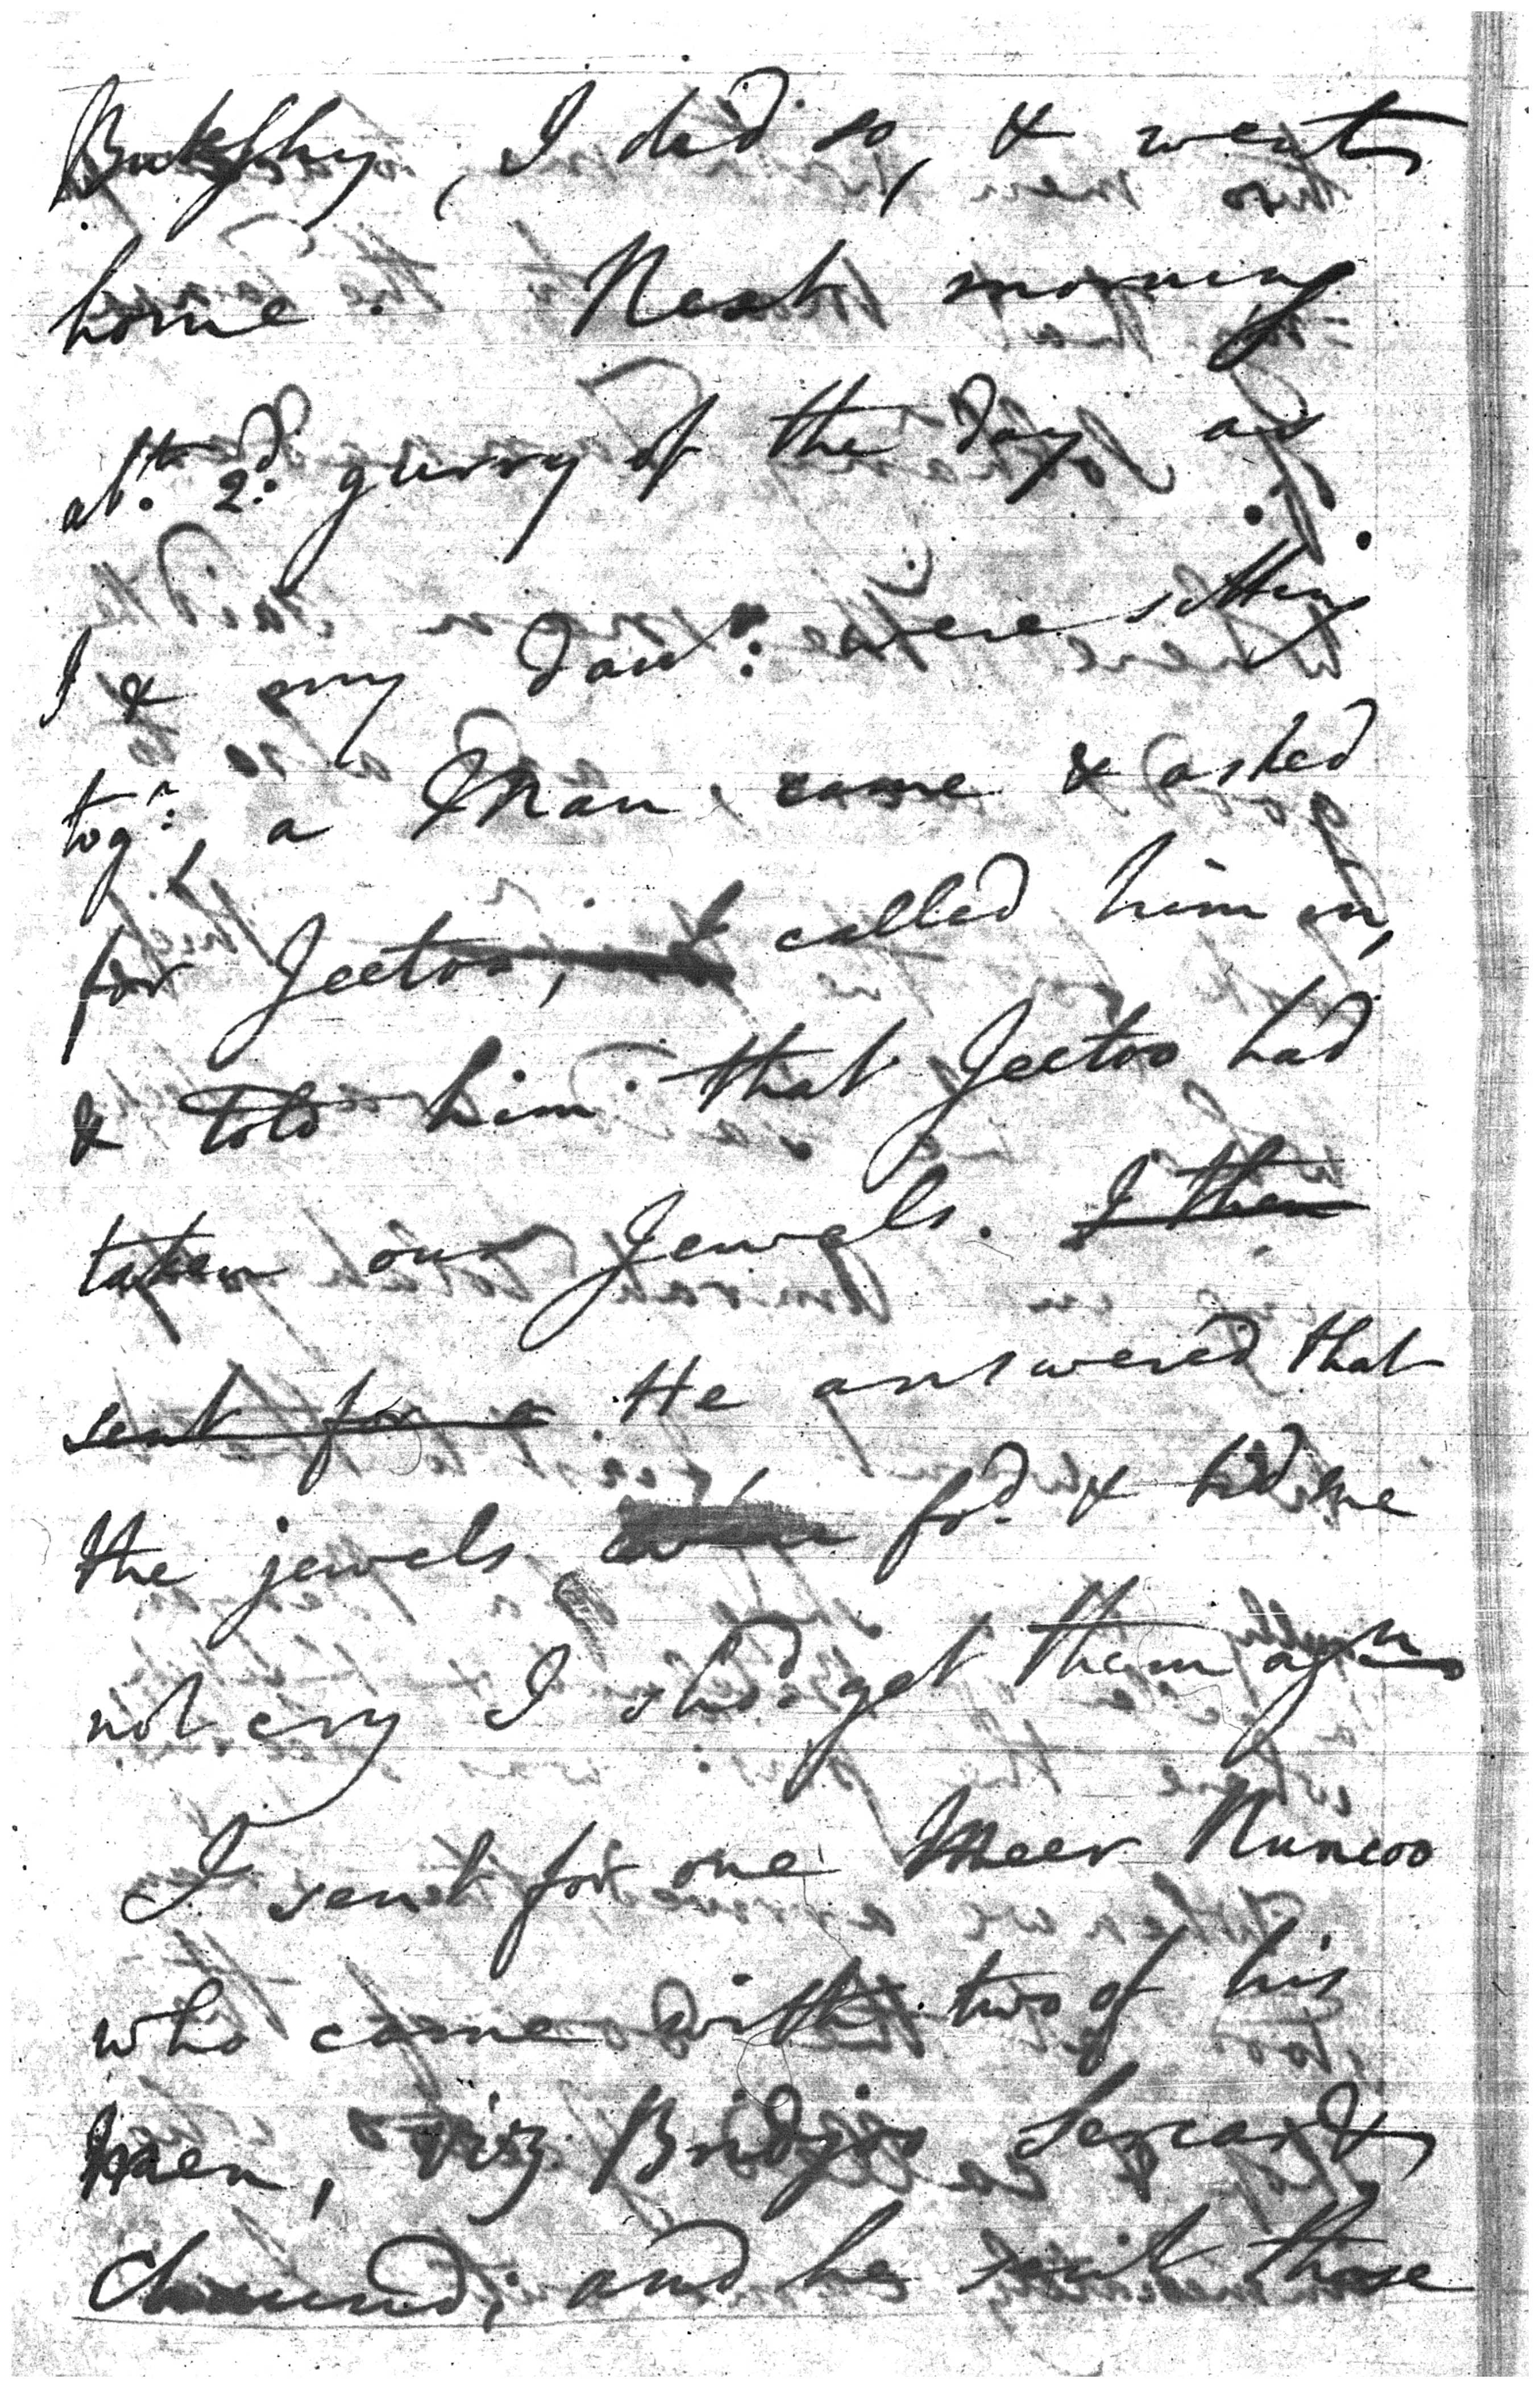 Bukshy, I did so, & went
home. Next morning
abt. 2d. gurry of the day as
I & my daur: were sitting
togr:, a Man came & asked
for Jeetoo, I called him in,
& told him that Jeetoo had
taken our Jewels. I then
sent for a He answered that
the jewels were fd. & bid me
not cry I shd. get them agn
I sent for one Meer Nuncoo
who came with two of his
men, viz Bridjoo Sercar &
Chund; and he sent those